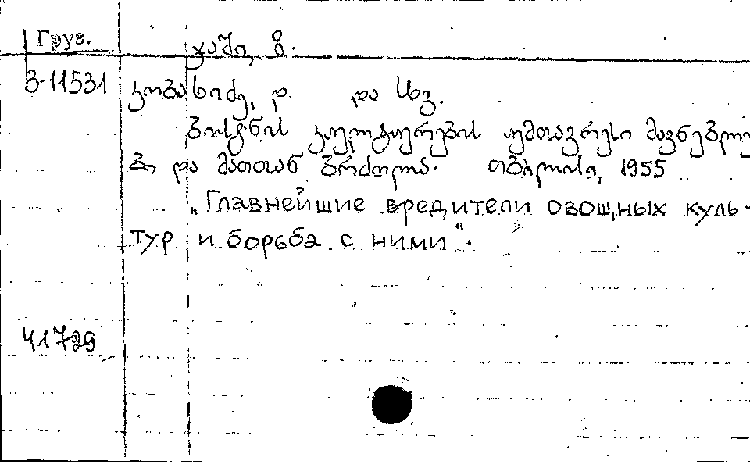 Груз.
3-11531
კობახიძე, დ. და სხვ.
ბოსტნის კულტურების უმთავრესი მავნებლე
ბი და მათთან ბრძოლა. თბილისი, 1955
„Главнейшие вредители овощных куль-
тур и борьба с ними".
41729